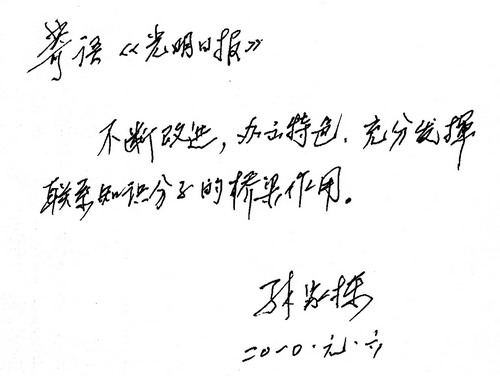 寄语《光明日报》
不断改进，办出特色，充分发挥
联系知识分子的桥梁作用。
孙家栋
二〇一〇·元·六